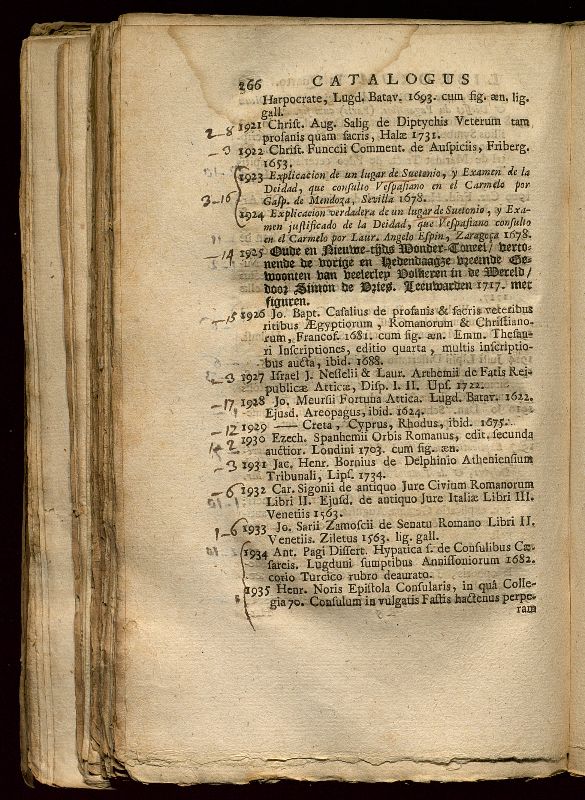 266 CATALOGUS
Harpocrate, Lugd. Batav. 1693. cum fig. æn. lig.
gall.
2-8 1921 Christ. Aug. Salig de Diptychis Veterum tam
profanis quam sacris, Halæ 1731.
-3 1922 Christ. Funccii Comment. de Auspiciis, Friberg.
1653.
1923 Explicacion de un lugar de Suetonio, y Examen de la
Deidad, que consulto Vespasiano en el Carmelo por
3-16 Gasp. de Mendoza, Sevilla 1678.
1924 Explicacion verdadera de un lugar de Suetonio, y Exa-
men justificado de la Deidad, que Vespasiano consulto
en el Carmelo por Laur. Angelo Espin, Zaragoza 1678.
-14 1925 Oude en Nieuwe-tijds Wonder-Toneel/ verto-
nende de vorige en Hedendaagze vreemde Ge-
woonten van veelerley Volkeren in de Wereld/
door Simon de Vries. Leeuwarden 1717. met
figuren.
-15 1926 Jo. Bapt. Casalius de profanis & sacris veteribus
ritibus Ægyptiorum, Romanorum & Christiano-
rum, Francof. 1681. cum fig. æn. Em. Thesau-
ri Inscriptiones, editio quarta, multis inscriptio-
bus aucta, ibid. 1688.
-3 1927 Israel J. Nesselii & Laur. Arthemii de Fatis Rei-
publicæ Atticæ, Disp. I. II. Ups. 1722.
-17 1928 Jo. Meursii Fortuna Attica. Lugd. Batav. 1622.
Ejusd. Areopagus, ibid. 1624.
-12 1929 —— Creta, Cyprus, Rhodus, ibid. 1675.
1930 Ezech. Spanhemii Orbis Romanus, edit. secunda
auctior. Londini 1703. cum fig. æn.
-3 1931 Jac. Henr. Bornius de Delphinio Atheniensium
Tribunali, Lips. 1734.
-6 1932 Car. Sigonii de antiquo Jure Civium Romanorum
Libri II. Ejusd. de antiquo Jure Italiæ Libri III.
Venetiis 1563.
1-6 1933 Jo. Sarii Zamoscii de Senatu Romano Libri II.
Venetiis. Ziletus 1563. lig. gall.
1934 Ant. Pagi Dissert. Hypatica s. de Consulibus Cæ-
sareis. Lugduni sumptibus Annissoniorum 1682.
corio Turcico rubro deaurato.
1935 Henr. Noris Epistola Consularis, in quâ Colle-
gia 70. Consulum in vulgatis Fastis hactenus perpe-
ram